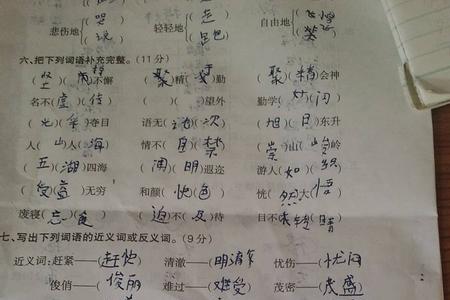 哭 走
悲伤地 轻轻地 自由地
说 笑
六、把下列词语补充完整。(11分)
(坚)(持)不懈 (聚)精()勤 (聚)(精)会神
名不(虚)(传) ( )( )望外 勤学()(问)
(光)(彩)夺目 语无(伦)(次) (旭)(日)东升
人(山)人(海) 情不(自)(禁) (崇)山()岭
(五)(湖)四海 (闻)(明)遐迩 游人(如)(织)
(受)(益)无穷 和颜(悦)(色) 恍(然)大(悟)
废寝(忘)(食) (迫)不(及)待 目不()(睛)
七、写出下列词语的近义词或反义词。(9分)
近义词:赶紧——(赶快) 清澈——(明清) 忧伤——(忧闷)
俊俏——(俊丽) 难过——(难受) 茂密——(茂盛)